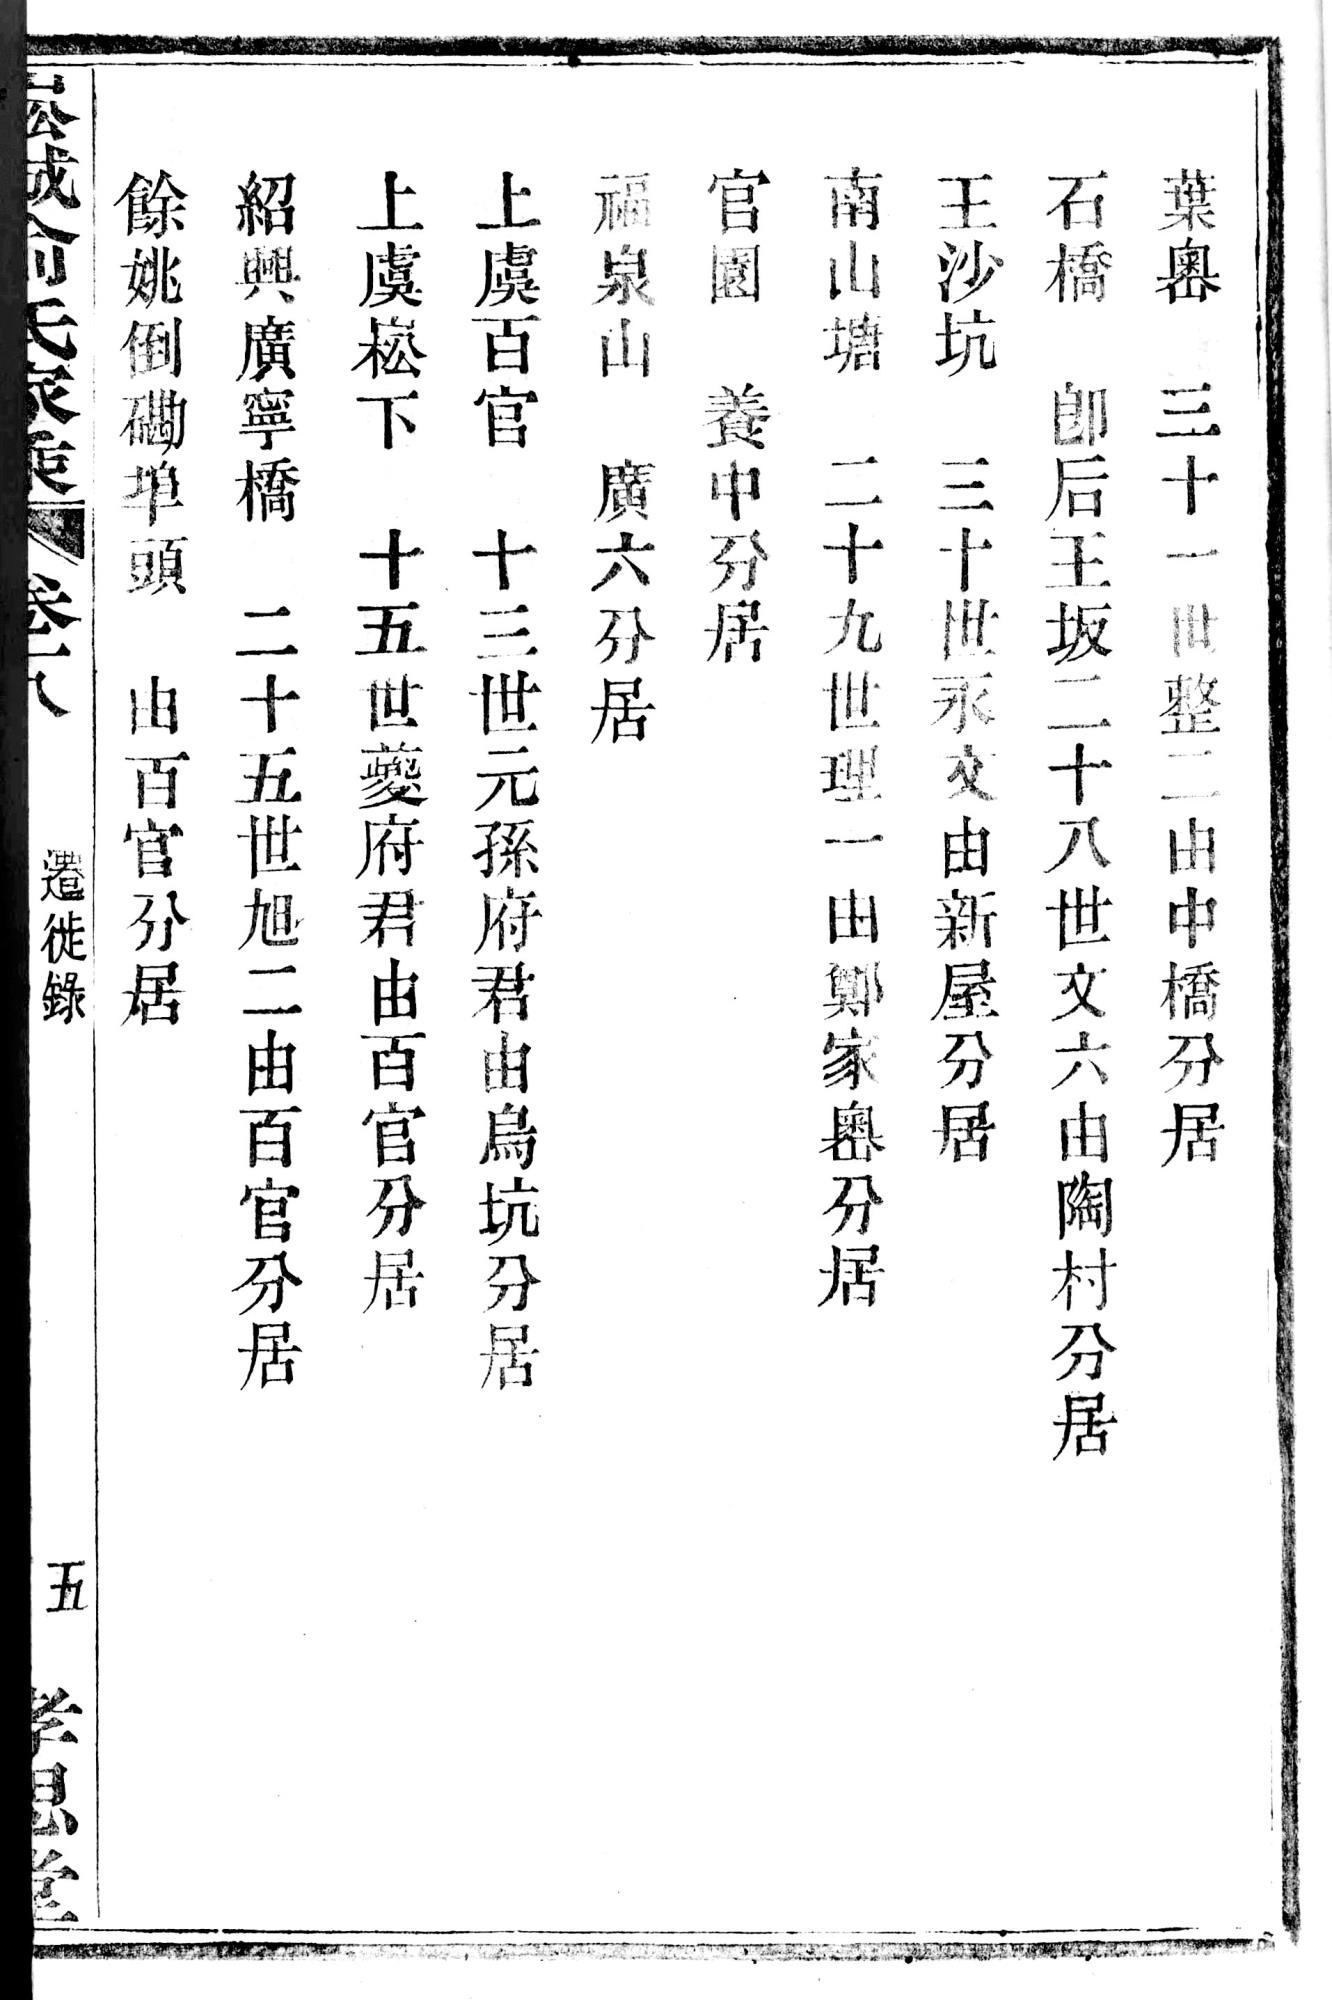 葉嶴　三十一世整二由中橋分居
石橋　卽后王坂二十八世文六由陶村分居
王沙坑　三十世永文由新屋分居
南山塘　二十九世理一由鄭家嶴分居
官園　養中分居
福泉山　廣六分居
上虞百官　十三世元孫府君由烏坑分居
上虞崧下　十五世夔府君由百官分居
紹興廣寧橋　二十五世旭二由百官分居
餘姚倒磡埠頭　由百官分居
崧城俞氏家乘　卷十八　遷徙錄　五　孝思堂